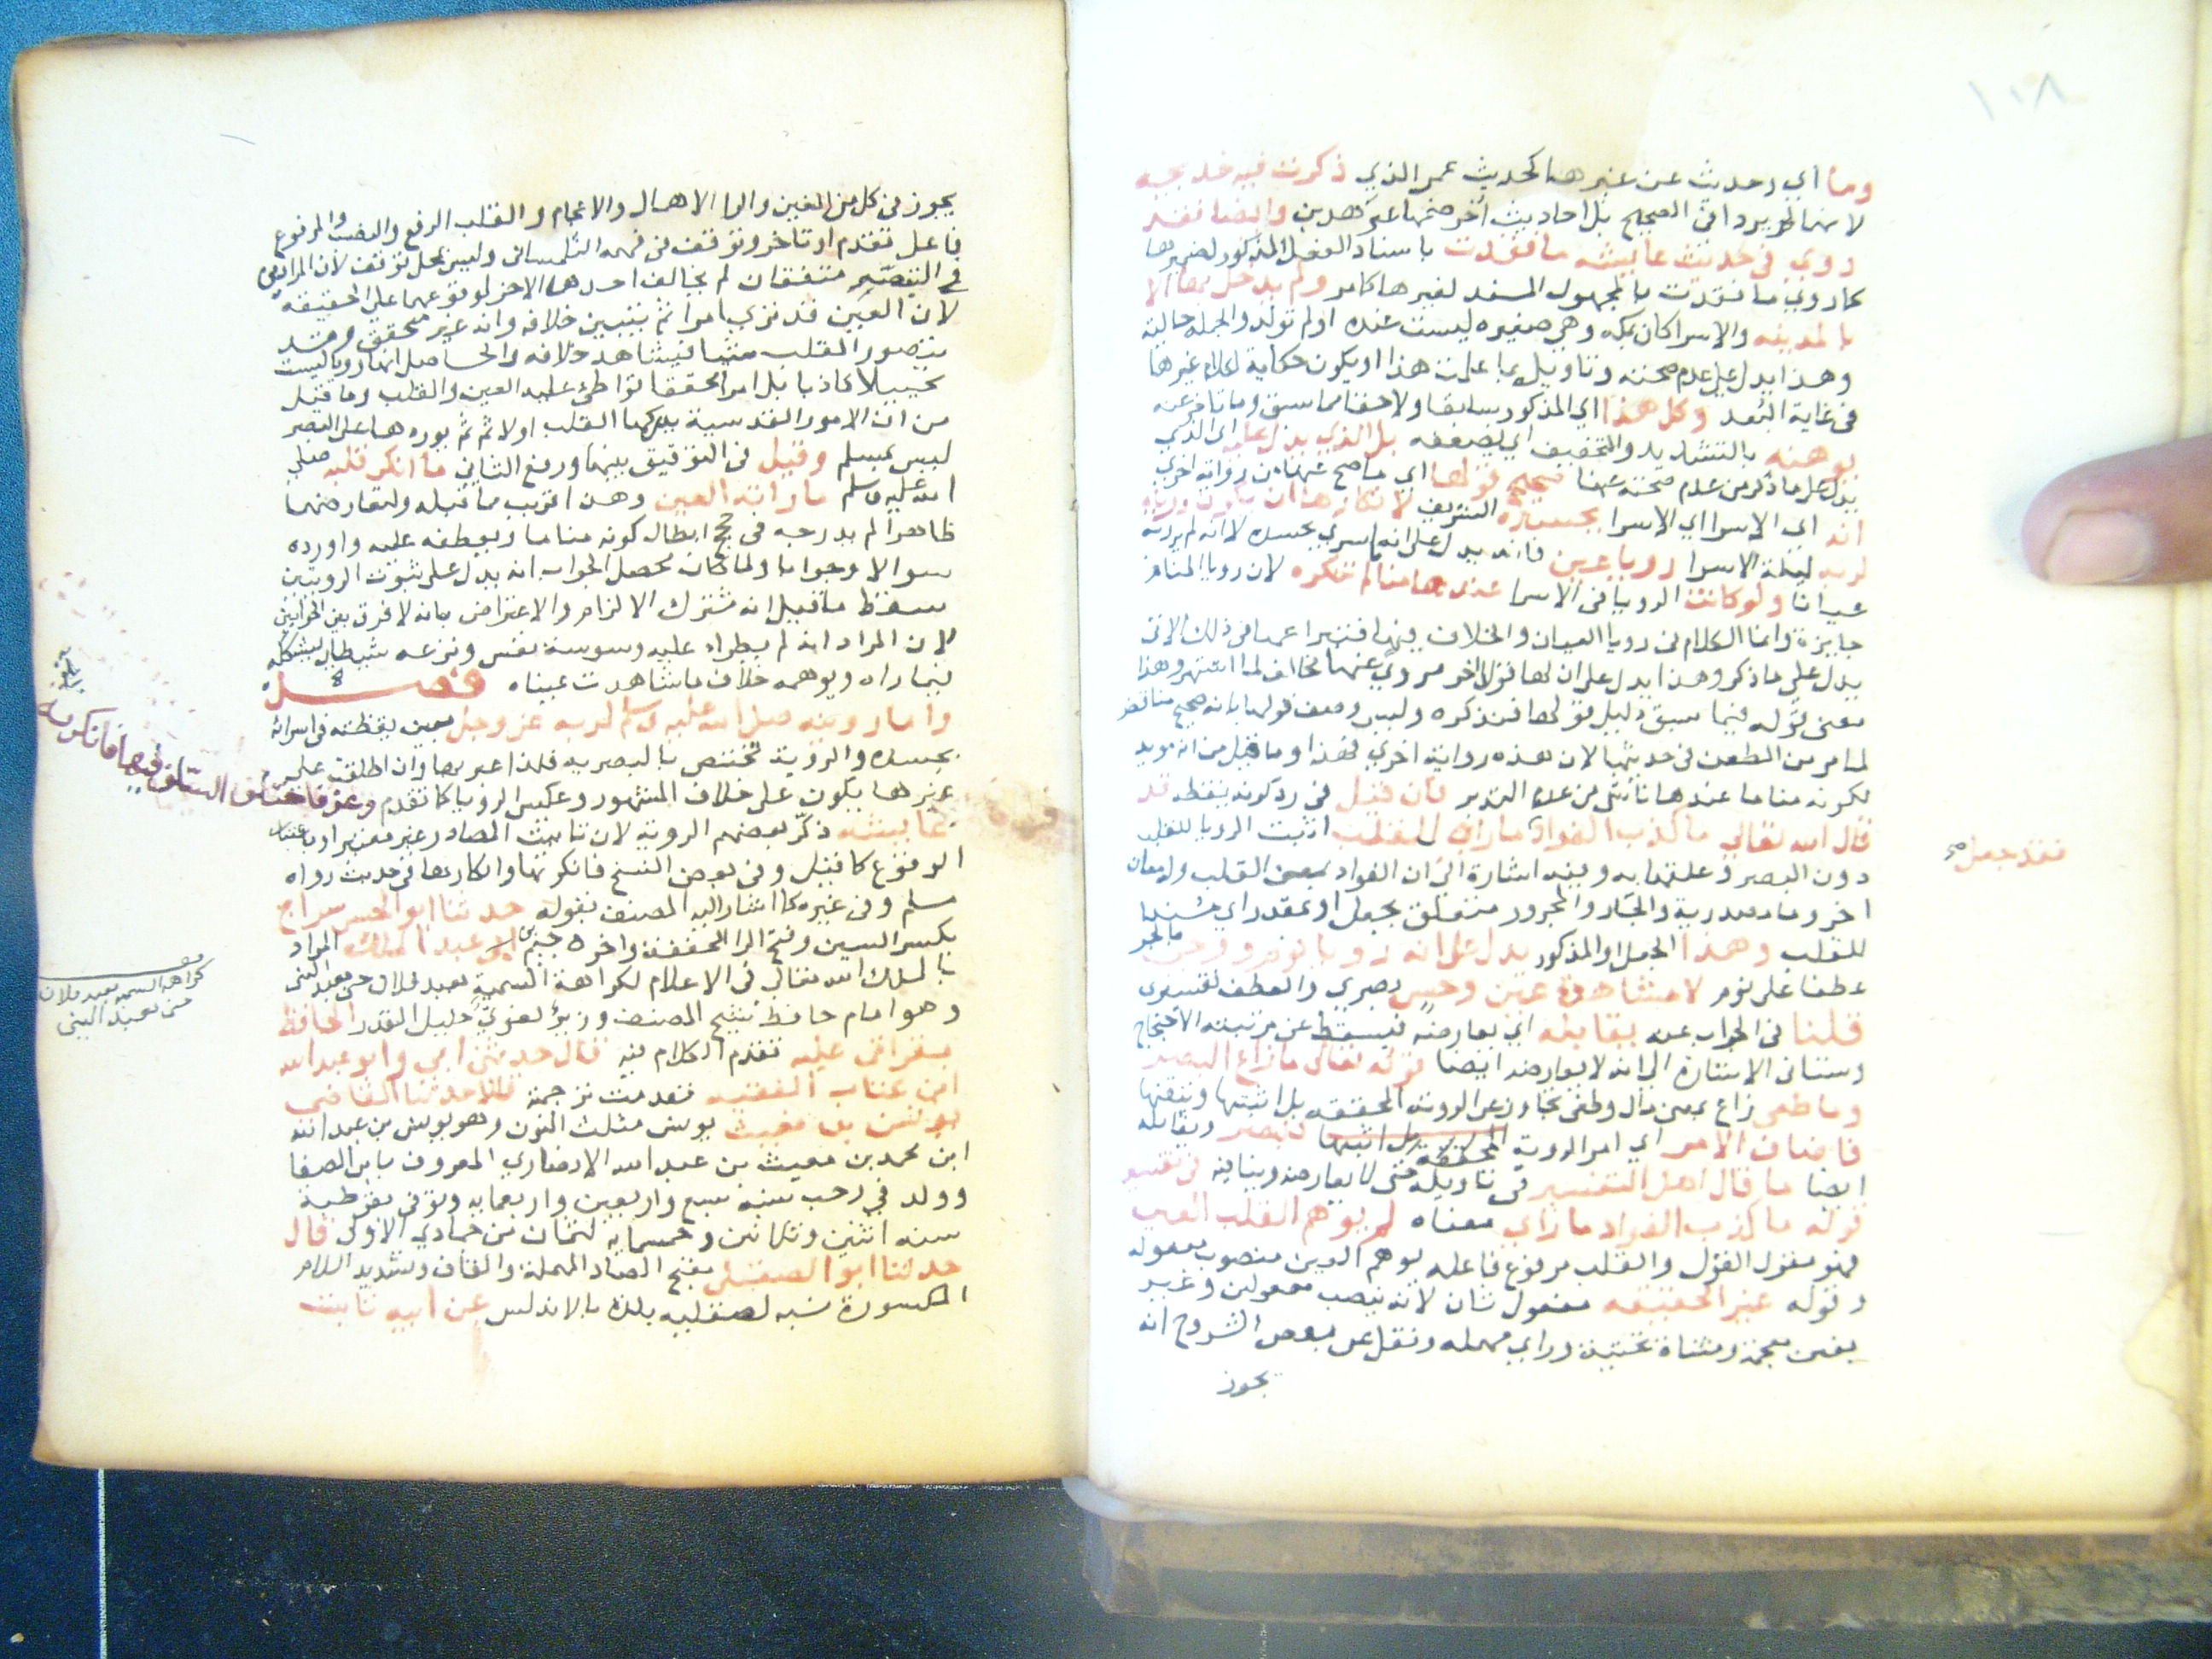 ١٠٨
وما اي وحديث عن غيرهما كحديث عمر الذي ذكرت فيه خديجه
لانهما لم يردا في الصحيح بل احاديث اخر منهما غيره وايضا فقد
روي في حديث عايشه ما فقدت باسناد الفعل المذكور لضميرها
كما روي ما فقدت بالمجهول المسند لغيرها كما مر ولم يدخل بها الا
بالمدينه والاسرا كان بمكه وهي صغيره ليست عنده او لم تولد والجمله حالية
وهذا يدل على عدم صحته وتاويله بما علمت هذا او يكون حكاية لكلام غيرها
في غاية البعد وكل هذا اي المذكور سابقا ولاحقا مما سبق وما تاخر عنه
يوهنه بالتشديد والتخفيف اي يضعفه بل الذي يدل عليه اي الذي
يدل على ما ذكر من عدم صحته عنها صحيح قولها اي ما صح عنها من رواية اخري
انه اي الاسرا اي الاسرا بجسده الشريف لانكارها ان يكون روياه
لربه ليلة الاسرا رويا عين فانه يدل على انه اسري بجسده لا انه لم يره
عيانا ولو كانت الرويا في الاسرا عندها مناما لم تنكره لان رويا المنام
جايزة وانما الكلام في رويا العيان والخلاف فيها
يدل على ما ذكر وهذا يدل على ان لها قولا اخر مروي عنها مخالف لما اشتهر وهذا
معنى قوله فيما سبق دليل قولها فتذكره وليس وصف قولها بانه صحيح مناقض
لما مر من الطعن في حديثها لان هذه رواية اخري فهذا وما قيل من انه مويد
لكونه مناما عندها ناشئ من عدم التدبر فان قيل في رد كونه يقظه قد
قال الله تعالي ما كذب الفواد ما راي للقلب اثبت الرويا للقلب
فقد جعل
دون البصر وعلقها به وفيه اشارة الى ان الفواد بمعنى القلب وله معان
اخر وما مصدرية والجار والمجرور متعلق بجعل او بمقدر اي مسندا
للقلب وهذا الجعل او المذكور يدل على انه رويا نوم ووحي بالجر
عطفا على نوم لا مشاهدة عين وحس بصري والعطف تفسيري
قلنا في الجواب عنه يقابله اي يعارضه فيسقط عن مرتبته الاحتجاج
وستاتي الاشارة الى انه لا يعارضه ايضا قوله تعالى ما زاغ البصر
وما طغى زاغ بمعنى مال وطغى تجاوز عن الروية المحققه بل اثبتها وتيقنها
فاضاف الامر اي امر الروية للبصر ويقابله
ايضا ما قال اهل التفسير في تاويله حتى لا يعارضه وينافيه في تفسير
قوله ما كذب الفواد ما راي معناه لم يوهم القلب العين
فهو مقول القول والقلب مرفوع فاعله يوهم العين منصوب مفعوله
وقوله غير الحقيقه مفعول ثان لانه ينصب مفعولين وغير
بغين معجمة ومثناة تحتية وراي مهمله ونقل عن بعض الشروح انه
يجوز
يجوز في كل من الغين والرا الاهمال والاعجام والقلب الرفع والنصب والمرفوع
فاعل تقدم او تاخر وتوقف في فهمه التلمساني وليس بمحل توقف لان المراد
في التفسير متفقان لم يخالف احدهما الاخر لوقوعهما على الحقيقه
لان العين قد تري امرا ثم يتبين خلافه وانه غير متحقق وقد
يتصور القلب شيا فيشاهد خلافه والحاصل انها رويا ليست
تخييلا كاذبا بل امرا محققا تواطى عليه العين والقلب وما قيل
من ان الامور القدسية يدركها القلب اولا ثم يوردها على البصر
ليس بمسلم وقيل في التوفيق بينهما ورفع الثاني ما انكر قلبه صلي
الله عليه وسلم ما راته العين وهذا قريب مما قبله ولتعارضهما
ظاهرا لم يدرجه في حجج ابطال كونه مناما ويعطفه عليه واورده
سوالا وجوابا ولما كان محصل الجواب انه يدل على ثبوت الرويتين
سقط ما قيل انه مشترك الالزام والاعتراض بانه لا فرق بين الجوابين
لان المراد انه لم يطرا عليه وسوسة نفس ونزعه شيطان ليشككه
فيما راه ويوهمه خلاف ما شاهدت عيناه فصل
واما رويته صلى الله عليه وسلم لربه عز وجل بعين يقظته في اسرائه
بجسده والروية تختص بالبصرية فلذا عبر بها وان اطلقت على
غيرها يكون على خلاف المشهور وعكس الرويا كما تقدم
فاختلف السلف فيها فانكرته
عايشه ذكر بعضهم الروية لان تانيث المصادر غير معتبر او باعتبار
الوقوع كما قيل وفي بعض النسخ فانكرتها وانكارها في حديث رواه
مسلم وفي غيره كما اشار اليه المصنف بقوله حدثنا ابو الحسن سراج
بكسر السين وفتح الرا المخففة واخره جيم بن عبد الملك المراد
بالملك الله تعالي في الاعلام لكراهة التسمية بعبد فلان حتى بعبد النبي
كراهة التسميه بعبد فلان
حتى بعبد النبي
وهو امام حافظ شيخ المصنف وزير لغوي جليل القدر الحافظ
بقراتي عليه تقدم الكلام فيه قال حدثني ابي وابو عبد الله
ابن عتاب الفقيه تقدمت ترجمة قالا حدثنا القاضي
يونس بن مغيث يونس مثلث النون وهو يونس بن عبد الله
ابن محمد بن مغيث بن عبد الله الانصاري المعروف بابن الصفا
وولد في رجب سنه سبع واربعين واربعمايه وتوفي بقرطبة
سنه اثنين وثلاثين وخمسمايه لثمان من جمادي الاولى قال
حدثنا ابو الفضل الصقلي بفتح الصاد المهملة والقاف وتشديد اللام
المكسورة نسبه لصقليه بلدة بالاندلس عن ابيه ثابت